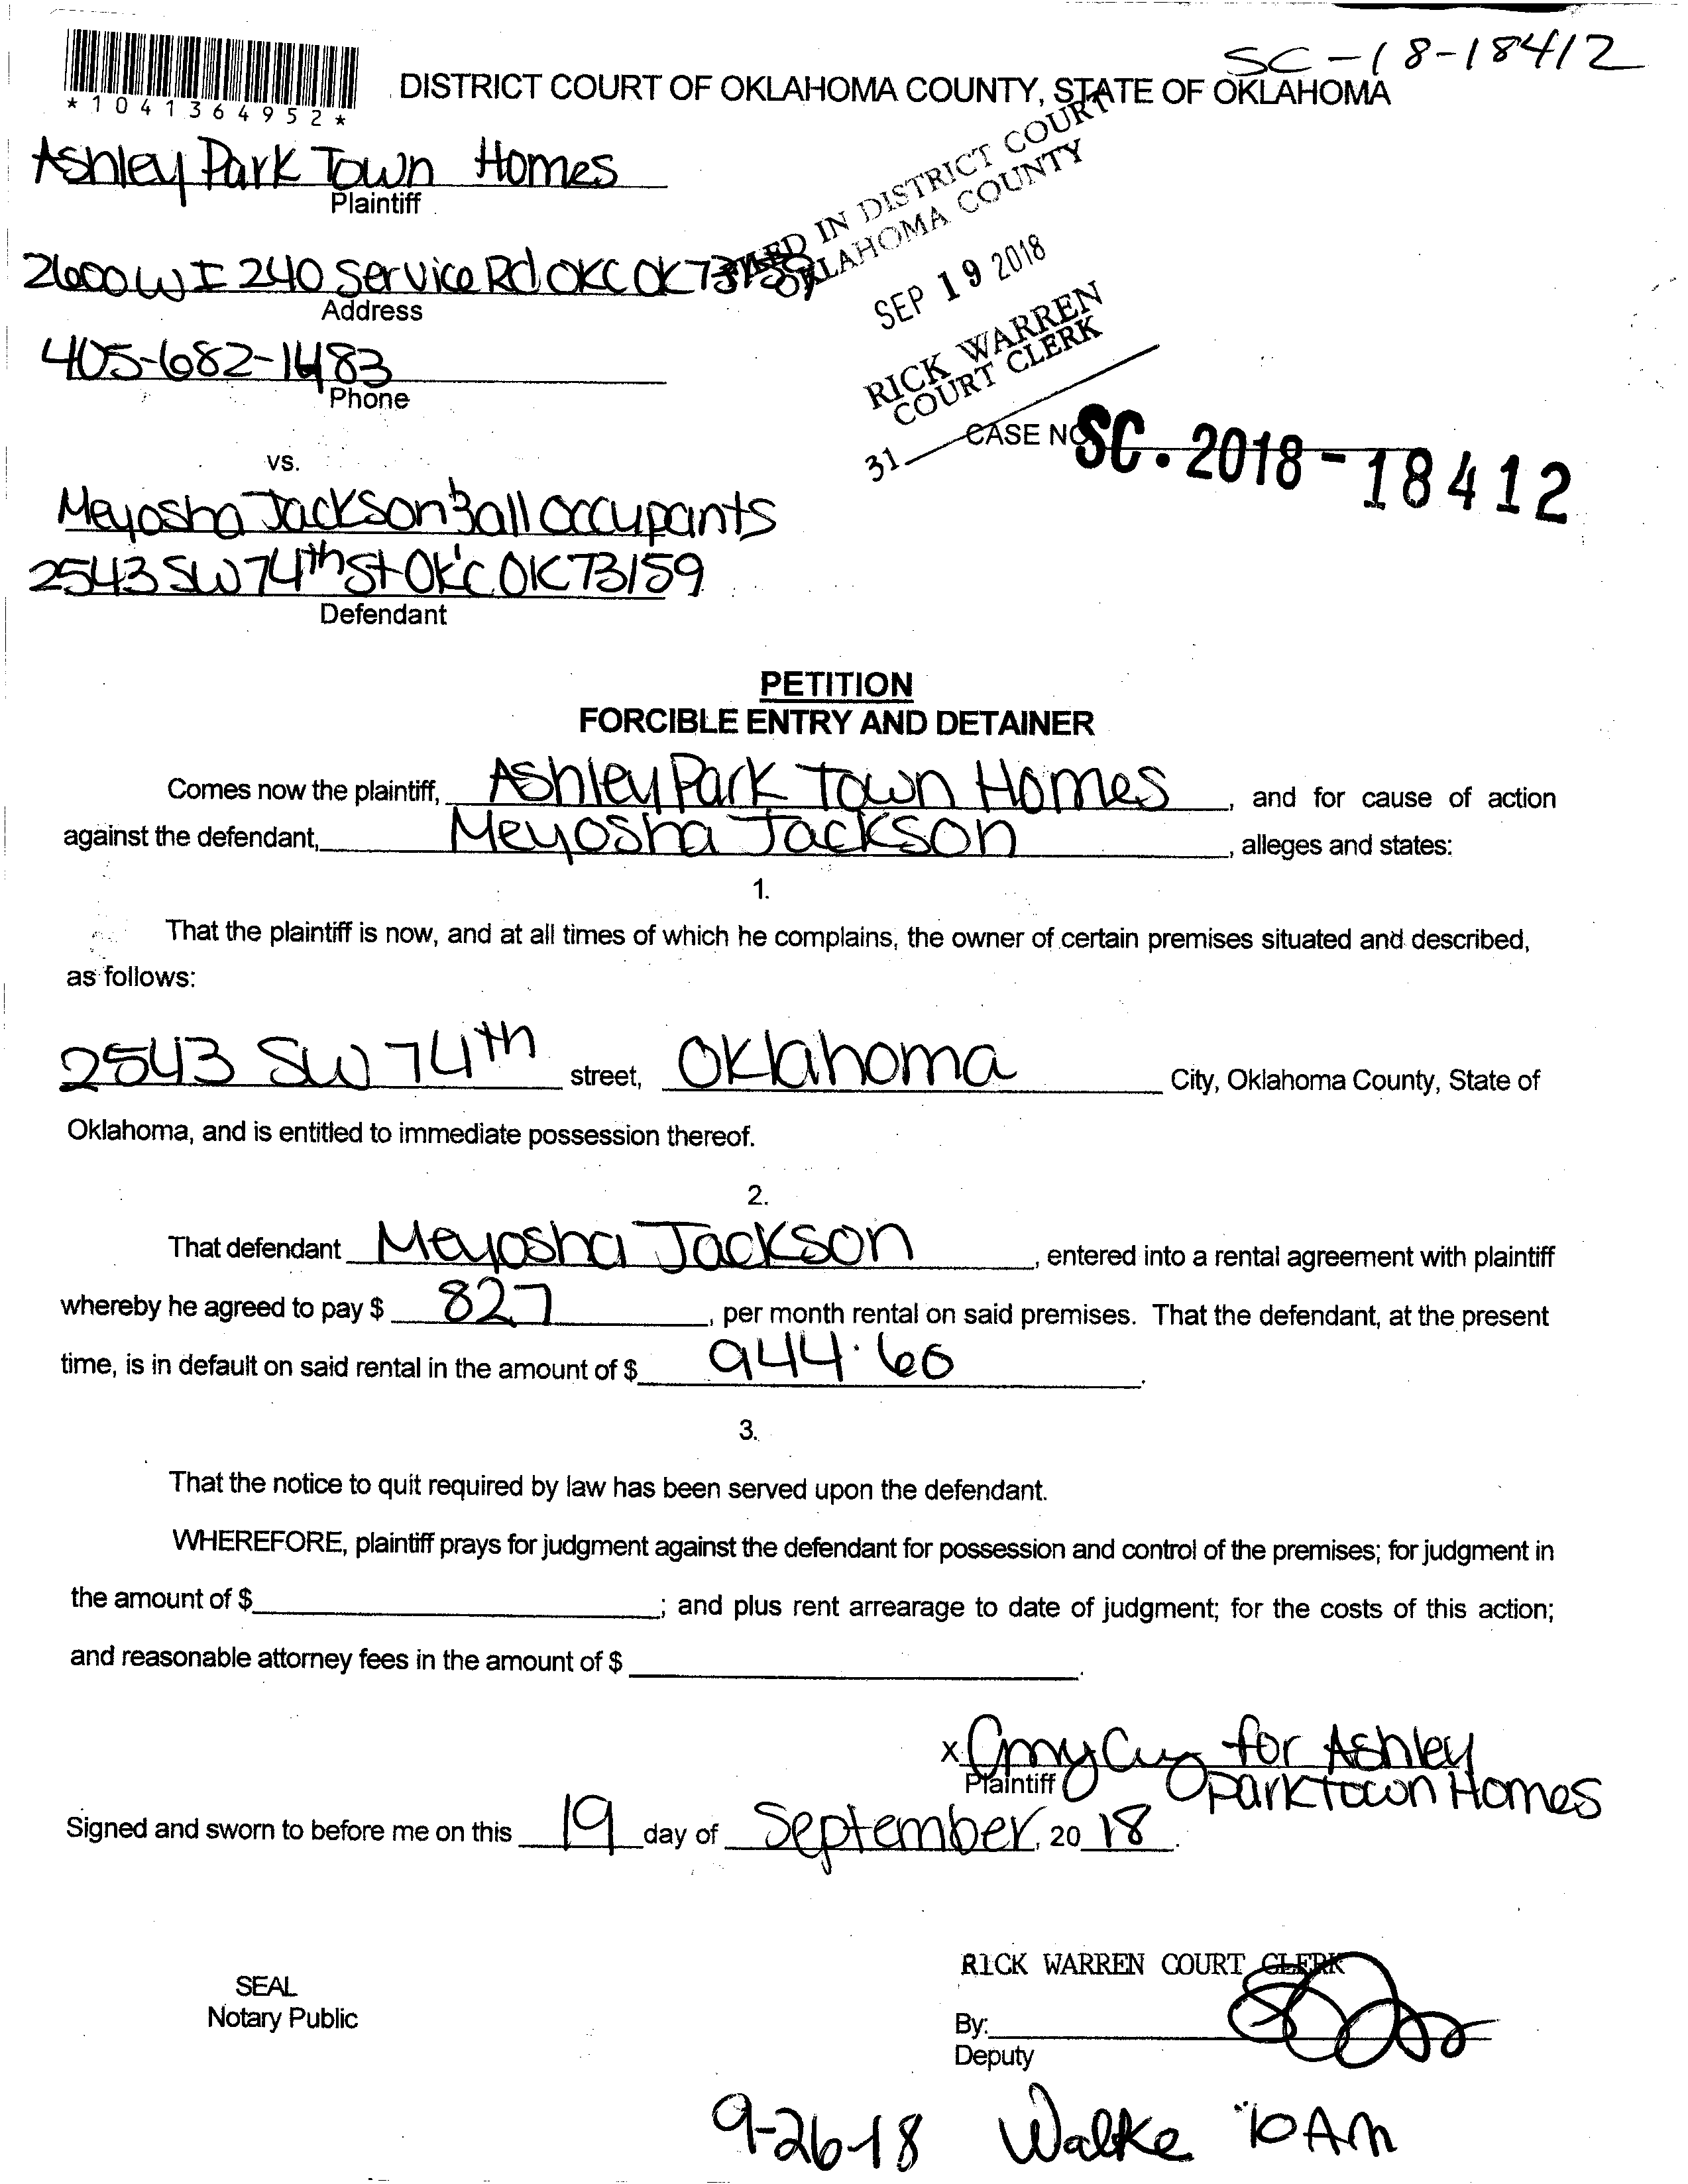 SC-18-18412
*1041364952*
DISTRICT COURT OF OKLAHOMA COUNTY, STATE OF OKLAHOMA
Ashley Park Town Homes
Plaintiff
FILED IN DISTRICT COURT
OKLAHOMA COUNTY
2600 W I 240 Service Rd OKC OK
Address
SEP 19 2018
405-682-1483
Phone
RICK WARREN
COURT CLERK
31
CASE NO. SC.2018-18412
vs.
Meyosha Jackson & all occupants
2543 SW 74th St OKC OK 73159
Defendant
PETITION
FORCIBLE ENTRY AND DETAINER
Comes now the plaintiff, Ashley Park Town Homes, and for cause of action
against the defendant, Meyosha Jackson, alleges and states:
1.
That the plaintiff is now, and at all times of which he complains, the owner of certain premises situated and described,
as follows:
2543 SW 74th street, Oklahoma City, Oklahoma County, State of
Oklahoma, and is entitled to immediate possession thereof.
2.
That defendant Meyosha Jackson, entered into a rental agreement with plaintiff
whereby he agreed to pay $ 827, per month rental on said premises. That the defendant, at the present
time, is in default on said rental in the amount of $ 944.60.
3.
That the notice to quit required by law has been served upon the defendant.
WHEREFORE, plaintiff prays for judgment against the defendant for possession and control of the premises; for judgment in
the amount of $ ; and plus rent arrearage to date of judgment; for the costs of this action;
and reasonable attorney fees in the amount of $ .
x Amy for Ashley
Plaintiff Park Town Homes
Signed and sworn to before me on this 19 day of September, 20 18.
RICK WARREN COURT CLERK
SEAL
Notary Public
By:
Deputy
9-26-18 Walke 10 AM